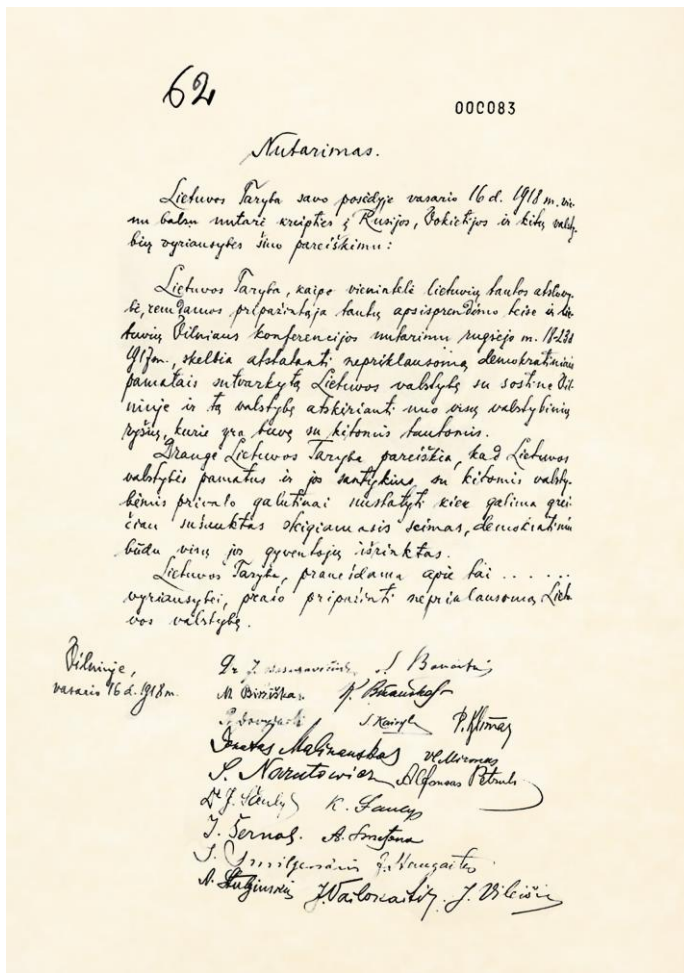 62
000083
Nutarimas.
Lietuvos Taryba savo posėdyje vasario 16 d. 1918 m. vie-
nu balsu nutarė kreipties į Rusijos, Vokietijos ir kitų valsty-
bių vyriausybes šiuo pareiškimu:
Lietuvos Taryba, kaipo vienintelė lietuvių tautos atstovy-
bė, remdamos pripažintąja tautų apsisprendimo teise ir lie-
tuvių Vilniaus konferencijos nutarimu rugsėjo m. 18-23 d.
1917 m., skelbia atstatanti nepriklausomą, demokratiniais
pamatais sutvarkytą Lietuvos valstybę su sostine Vil-
niuje ir tą valstybę atskirianti nuo visų valstybinių
ryšių, kurie yra buvę su kitomis tautomis.
Drauge Lietuvos Taryba pareiškia, kad Lietuvos
valstybės pamatus ir jos santykius su kitomis valsty-
bėmis privalo galutinai nustatyti kiek galima grei-
čiau sušauktas steigiamasis seimas, demokratiniu
būdu visų jos gyventojų išrinktas.
Lietuvos Taryba, pranešdama apie tai . . . . . .
vyriausybei, prašo pripažinti nepriklausomą Lietu-
vos valstybę.
Vilniuje,
vasario 16 d. 1918 m.
Dr J. Basanavičius S. Banaitis
M. Biržiška K. Bizauskas
P. Dovydaitis S. Kairys P. Klimas
Donatas Malinauskas Vl. Mironas
S. Narutowicz Alfonsas Petrulis
Dr J. Šaulys K. Šaulys
J. Šernas A. Smetona
J. Smilgevičius J. Staugaitis
A. Stulginskis J. Vailokaitis J. Vileišis